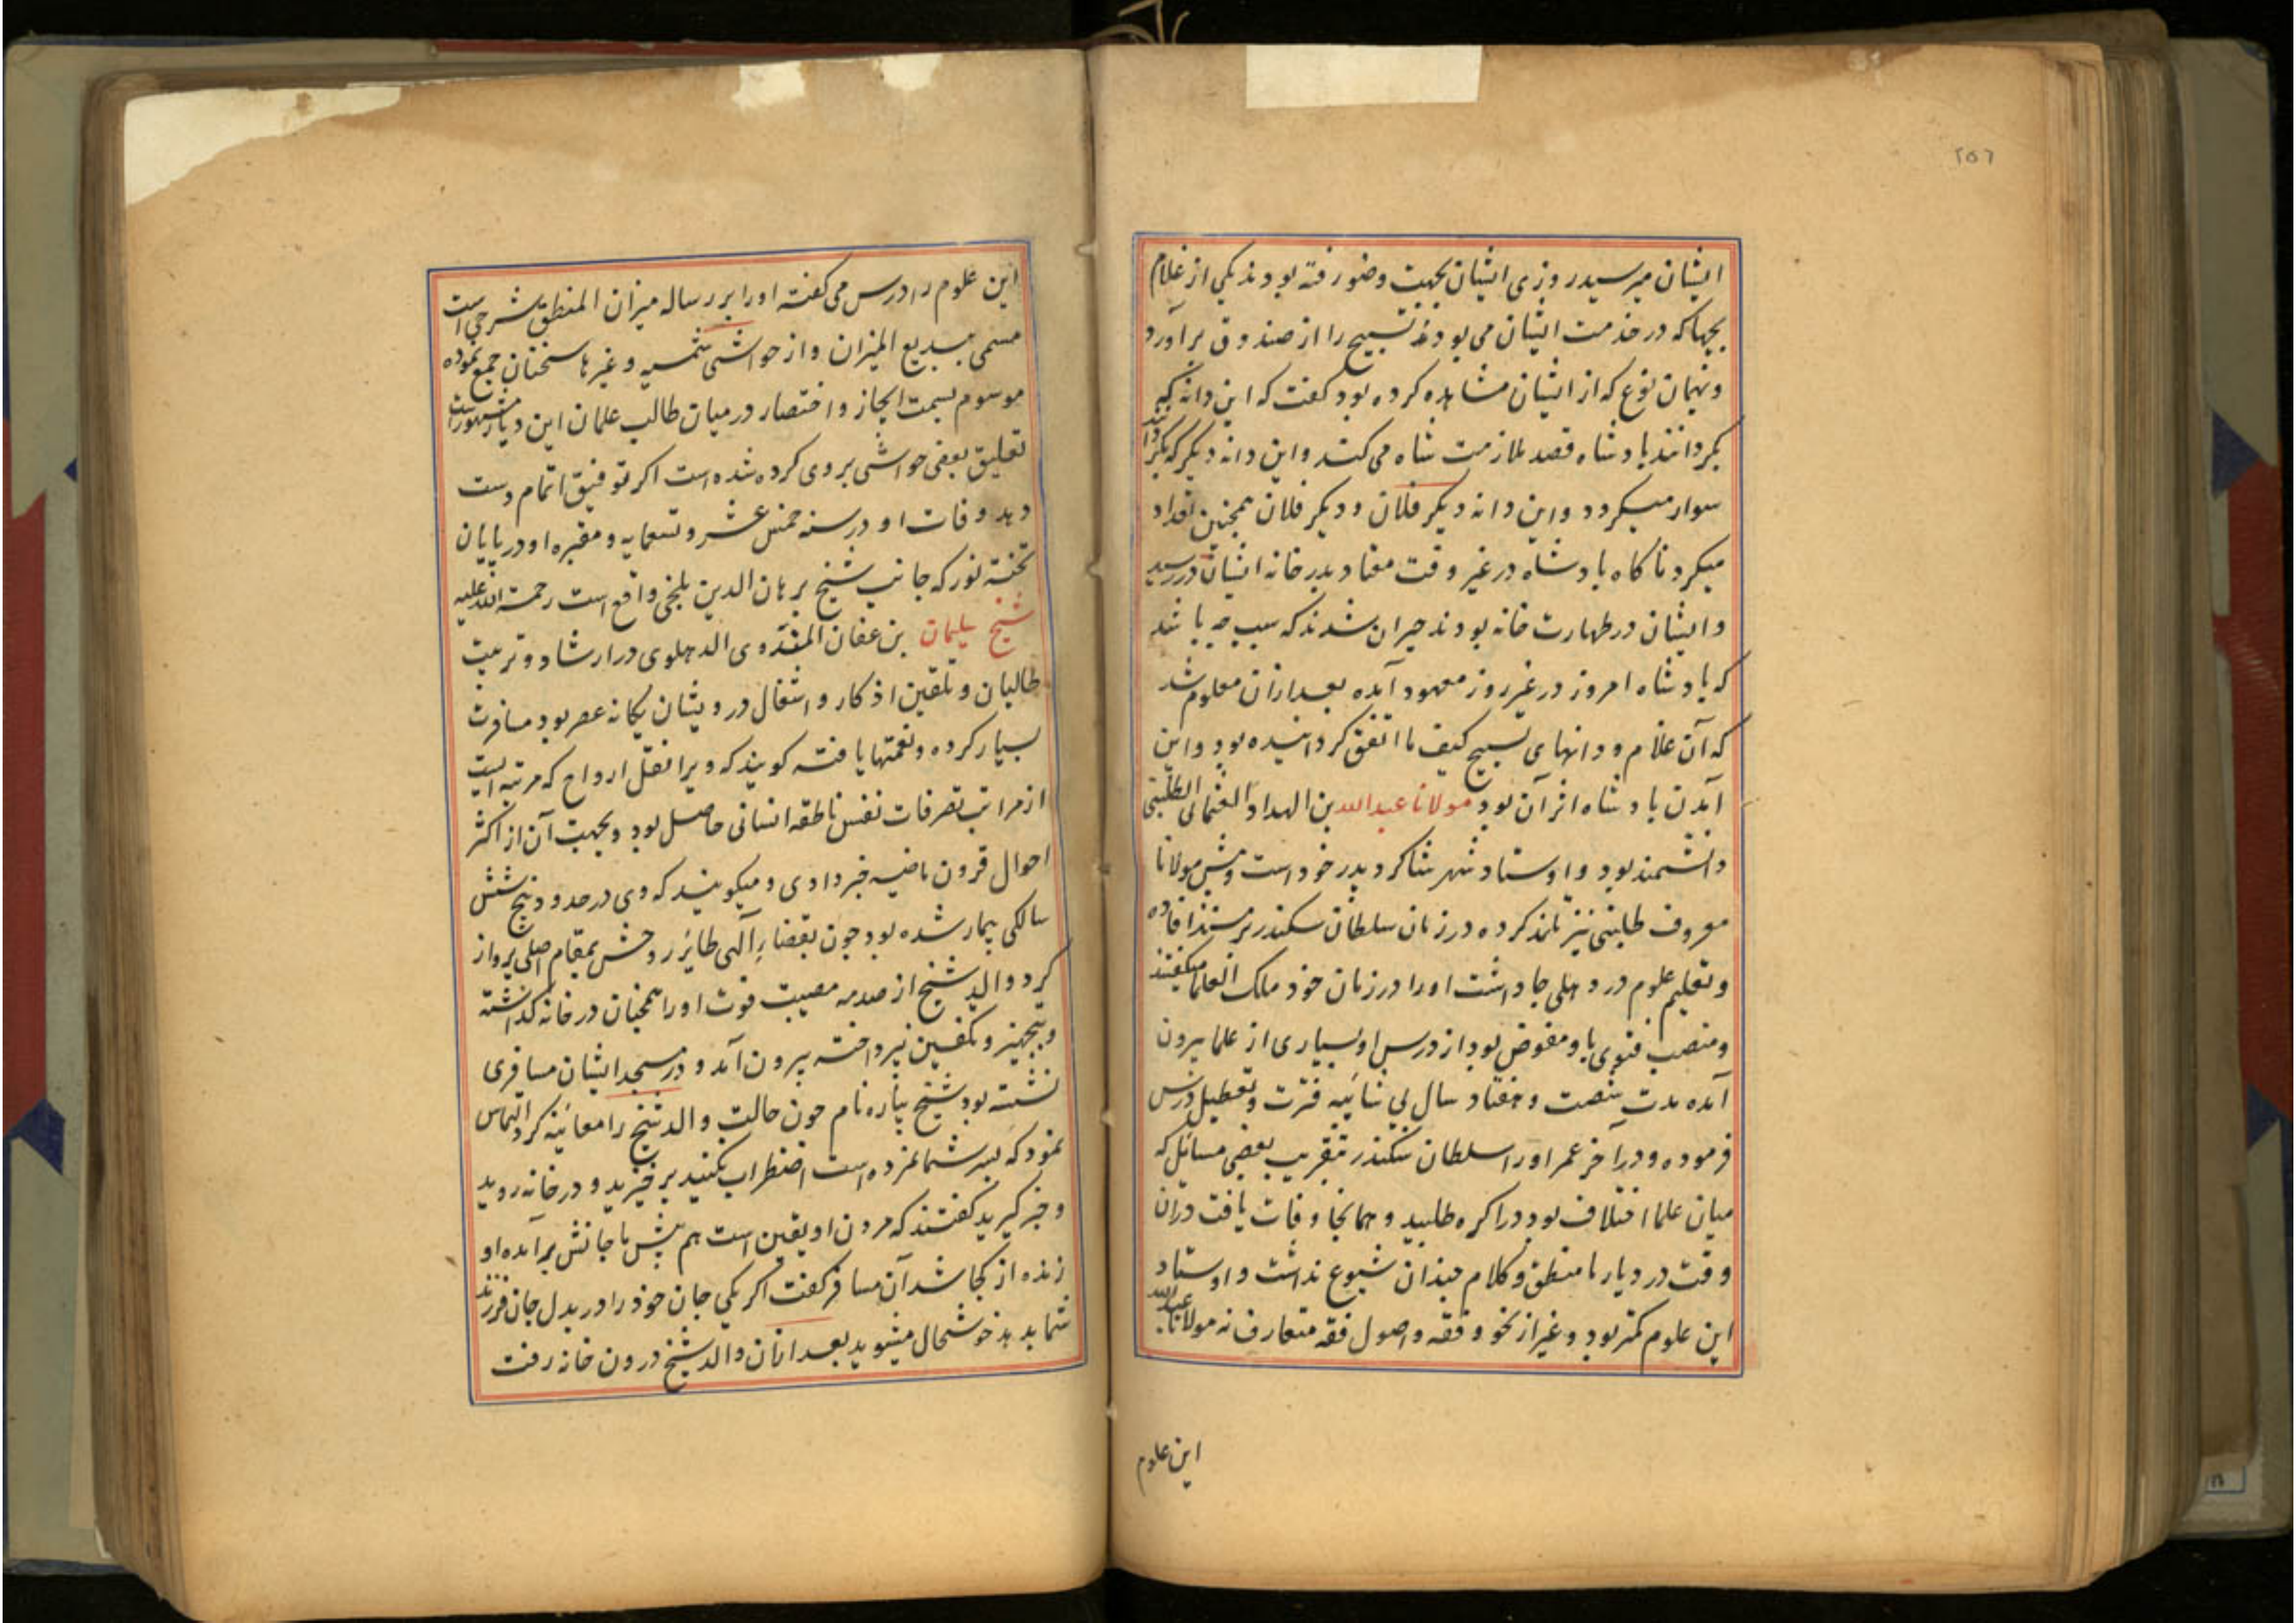 ۲۵۶
ایشان میرسید روزی ایشان بجهت وضو رفته بودند یکی از غلام
بچها که در خدمت ایشان می بود تسبیح را از صندوق برآورد
و بهمان نوع که از ایشان مشاهده کرده بود گفت که این دانه که
بگردانند بادشاه قصد ملازمت شاه می کند و این دانه دیگر که بگردانند
سوار میگردد و این دانه دیگر فلان و دیگر فلان همچنین تعداد
میکرد ناگاه بادشاه در غیر وقت معتاد بدر خانه ایشان در رسید
و ایشان در طهارت خانه بودند حیران شدند که سبب چه باشد
که بادشاه امروز در غیر روز معهود آمده بعد ازان معلوم شد
که آن غلام و دانهای تسبیح کیف ما اتفق گردانیده بود و این
آمدن بادشاه اثر آن بود مولانا عبدالله بن الهداد العثمانی الطلبنی
دانشمند بود و اوستاد شهر شاگرد پدر خود است و پیش مولانا
معروف طلبنی نیز تلمذ کرده در زمان سلطان سکندر بر مسند افاده
و تعلیم علوم در دهلی جا داشت او را در زمان خود ملک العلما میگفتند
و منصب فتوی باو مفوض بود از درس او بسیاری از علما بیرون
آمده مدت شصت و هفتاد سال بی شائبه فترت و تعطیل درس
فرموده و در آخر عمر او را سلطان سکندر بتقریب بعضی مسائل که
میان علما اختلاف بود در اکره طلبید و همانجا وفات یافت دران
وقت در دیار ما منطق و کلام چندان شیوع نداشت و اوستاد
این علوم کمتر بود و غیر از نحو و فقه و اصول فقه متعارف نه مولانا عبدالله
این علوم
این علوم را درس می گفته او را بر رساله میزان المنطق شرحی است
مسمی ببدیع المیزان و از حواشی شمسیه و غیرها سخنان جمع نموده
موسوم بسمت ایجاز و اختصار در میان طالب علمان این دیار مشهور است
تعلیق بعضی حواشی بر وی کرده شده است اکر توفیق اتمام دست
دهد وفات او در سنه خمس عشر و تسعمایه و مقبره او در پایان
تختهٔ نور که جانب شیخ برهان الدین بلخی واقع است رحمة الله علیه
شیخ سلیمان بن عفان المندوی الدهلوی در ارشاد و تربیت
طالبان و تلقین اذکار و اشغال درویشان یگانه عصر بود مسافرت
بسیار کرده و نعمتها یافته گویند که ویرا نقل ارواح که مرتبه ایست
از مراتب تصرفات نفس ناطقه انسانی حاصل بود و بجهت آن از اکثر
احوال قرون ماضیه خبر دادی و میگویند که وی در حدود پنج شش
سالگی بیمار شده بود چون بقضاء الهی طایر روحش بمقام اصلی پرواز
کرد والد شیخ از صدمه مصیبت فوت او را همچنان در خانه گذاشته
و بتجهیز و تکفین نپرداخته بیرون آمد و در مسجد ایشان مسافری
نشسته بود شیخ پیاره نام چون حالت والد شیخ را معائنه کرد التماس
نمود که پسر شما نمرده است اضطراب مکنید برخیزید و در خانه روید
و خبر گیرید گفتند که مردن او یقین است هم پیش ما جانش برآمده او
زنده از کجا شد آن مسافر گفت اگر یکی جان خود را در بدل جان فرزند
شما بدهد خوشحال میشوید بعد ازان والد شیخ درون خانه رفت